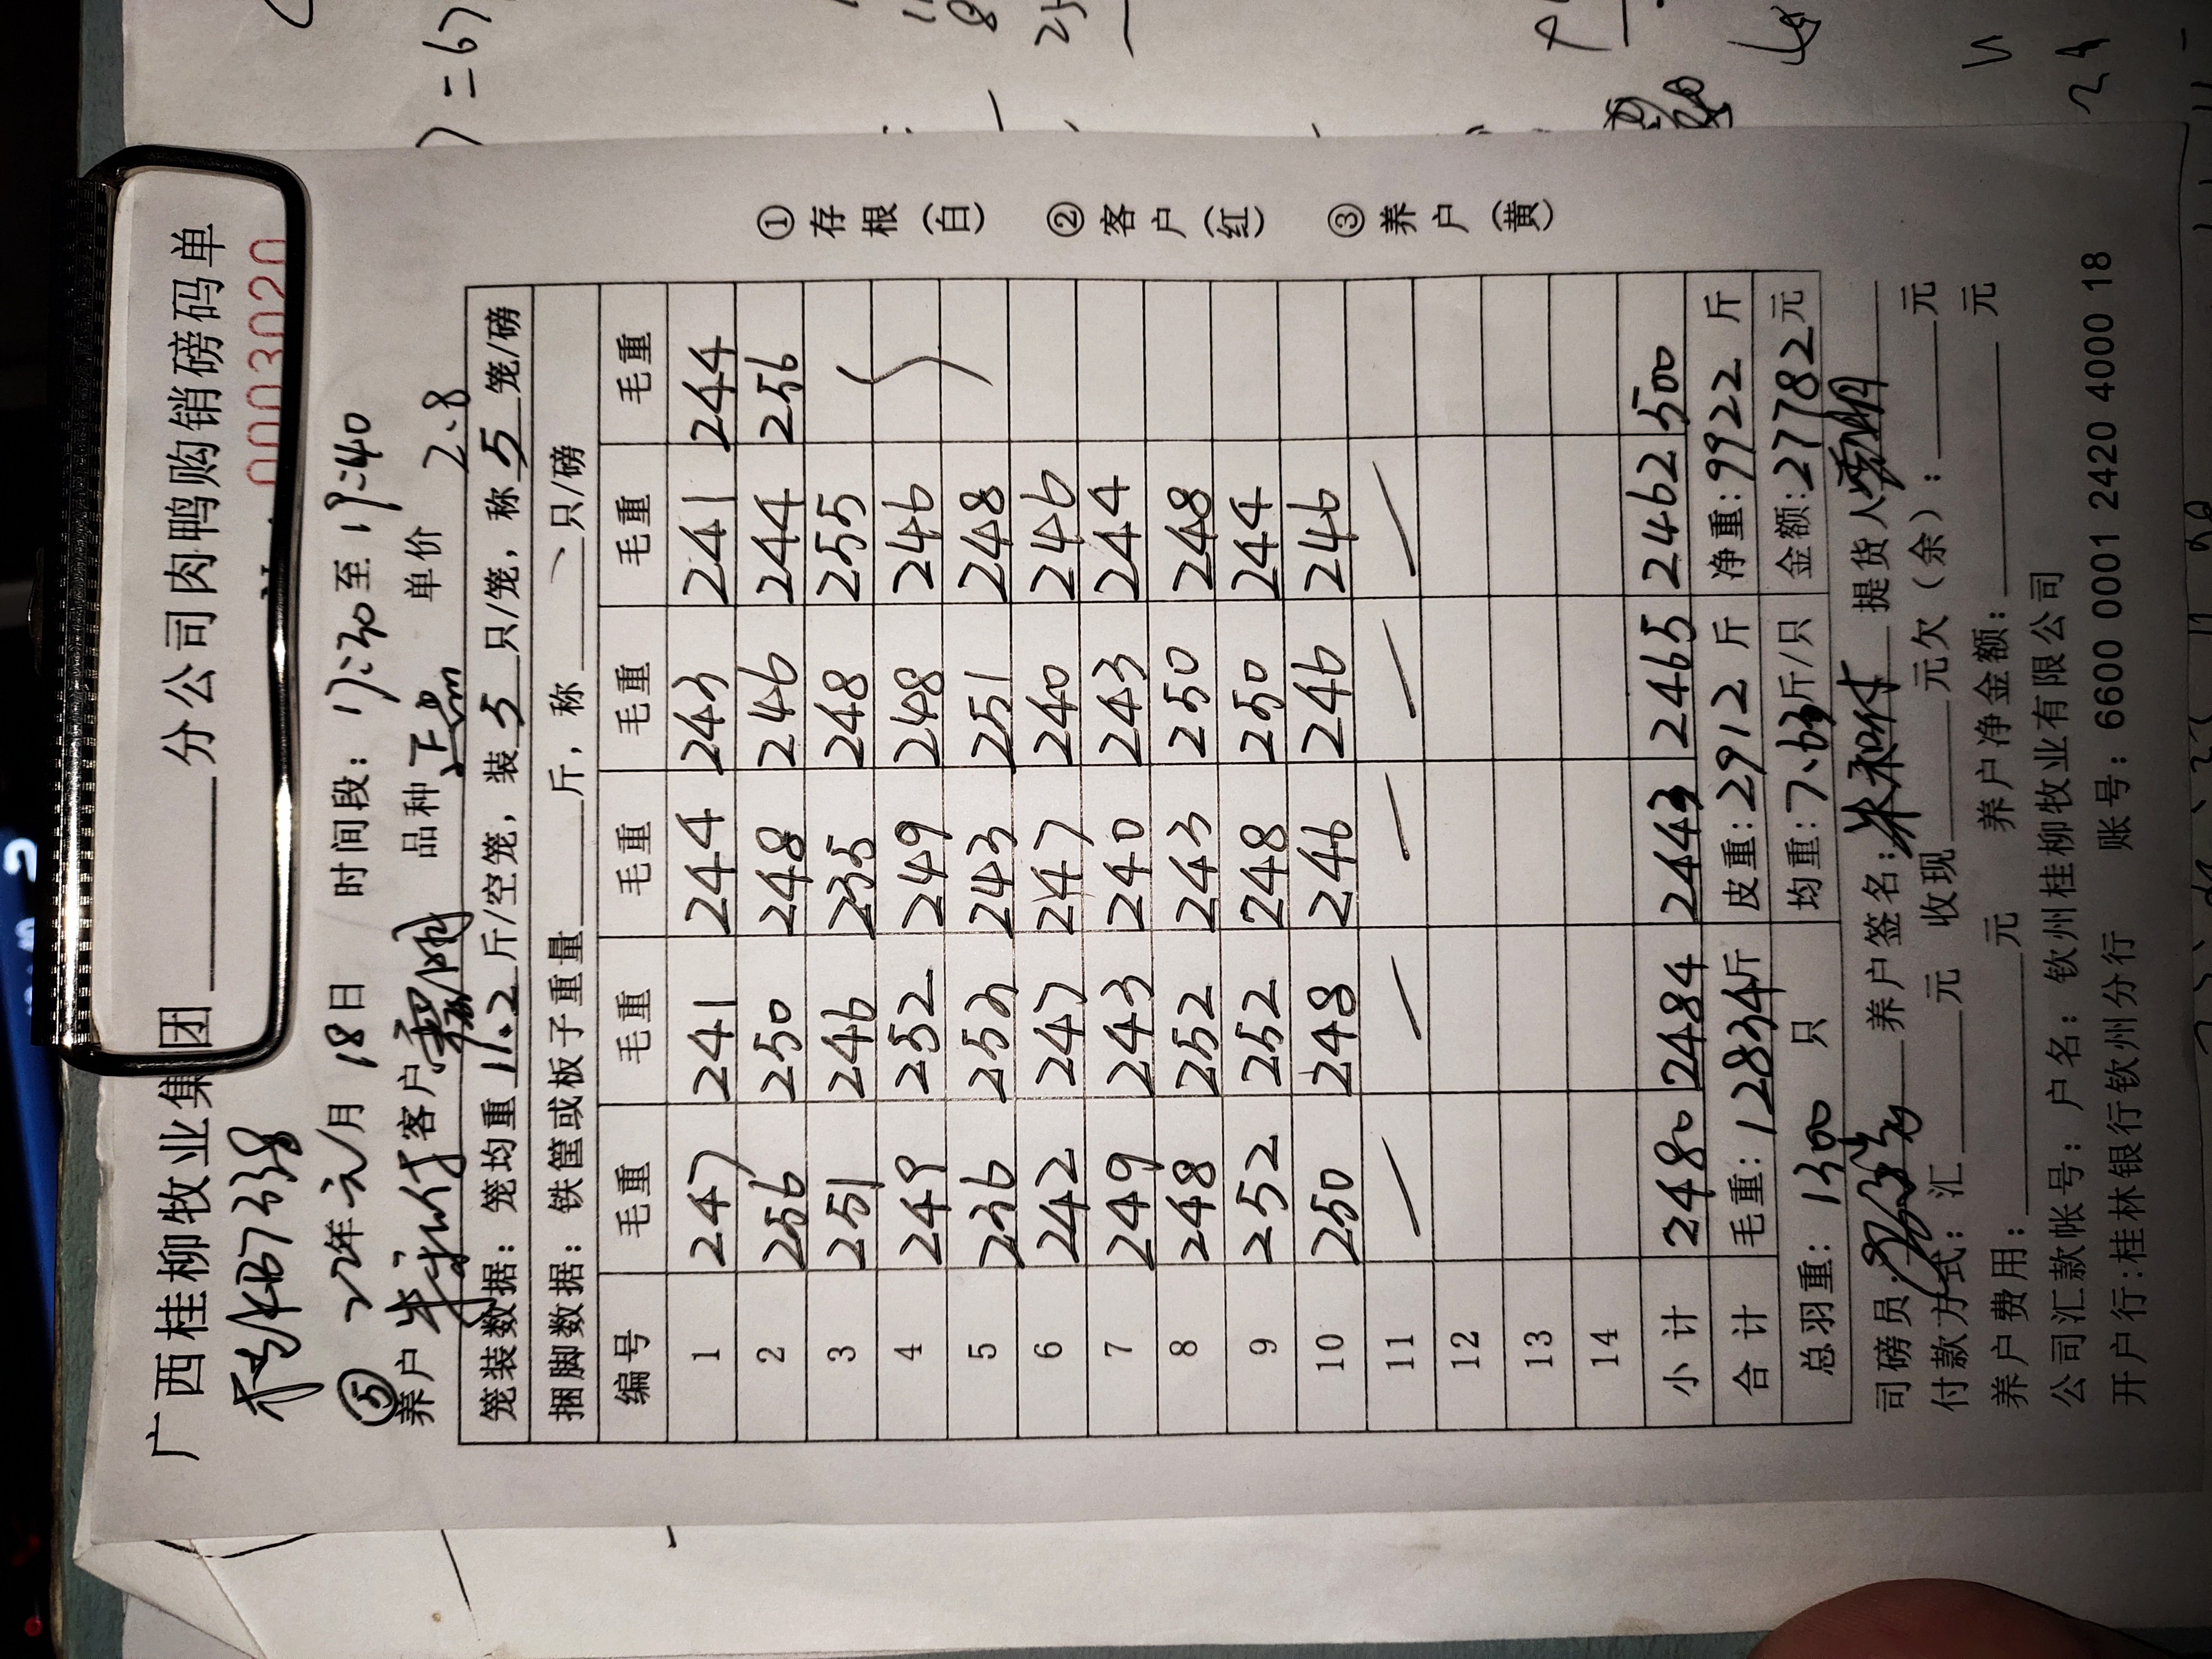 广西桂柳牧业集团______分公司肉鸭购销磅码单
0003020
22年元月18日 时间段：17:30至19:40
⑤
养户 客户 品种 正品 单价 2.8
笼装数据：笼均重 11.2 斤/空笼，装 5 只/笼，称 5 笼/磅
捆脚数据：铁筐或板子重量______斤，称______只/磅
编号 毛重 毛重 毛重 毛重 毛重 毛重
1 247 241 244 243 241 244
2 256 250 248 246 244 256
3 251 246 235 248 255
4 249 252 249 248 246
5 236 253 243 251 248
6 242 247 247 240 246
7 249 243 240 243 244
8 248 252 243 250 248
9 252 252 248 250 244
10 250 248 246 246 246
11
12
13
14
小计 2480 2484 2443 2465 2462 500
合计 毛重：12834斤 皮重：2912 斤 净重：9922 斤
总羽重：1300 只 均重：7.63斤/只 金额：27782元
司磅员： 养户签名： 提货人
付款方式：汇______元 收现______元欠（余）：______元
养户费用：______元 养户净金额：______元
公司汇款帐号：户名：钦州桂柳牧业有限公司
开户行：桂林银行钦州分行 账号：6600 0001 2420 4000 18
①存根（白） ②客户（红） ③养户（黄）